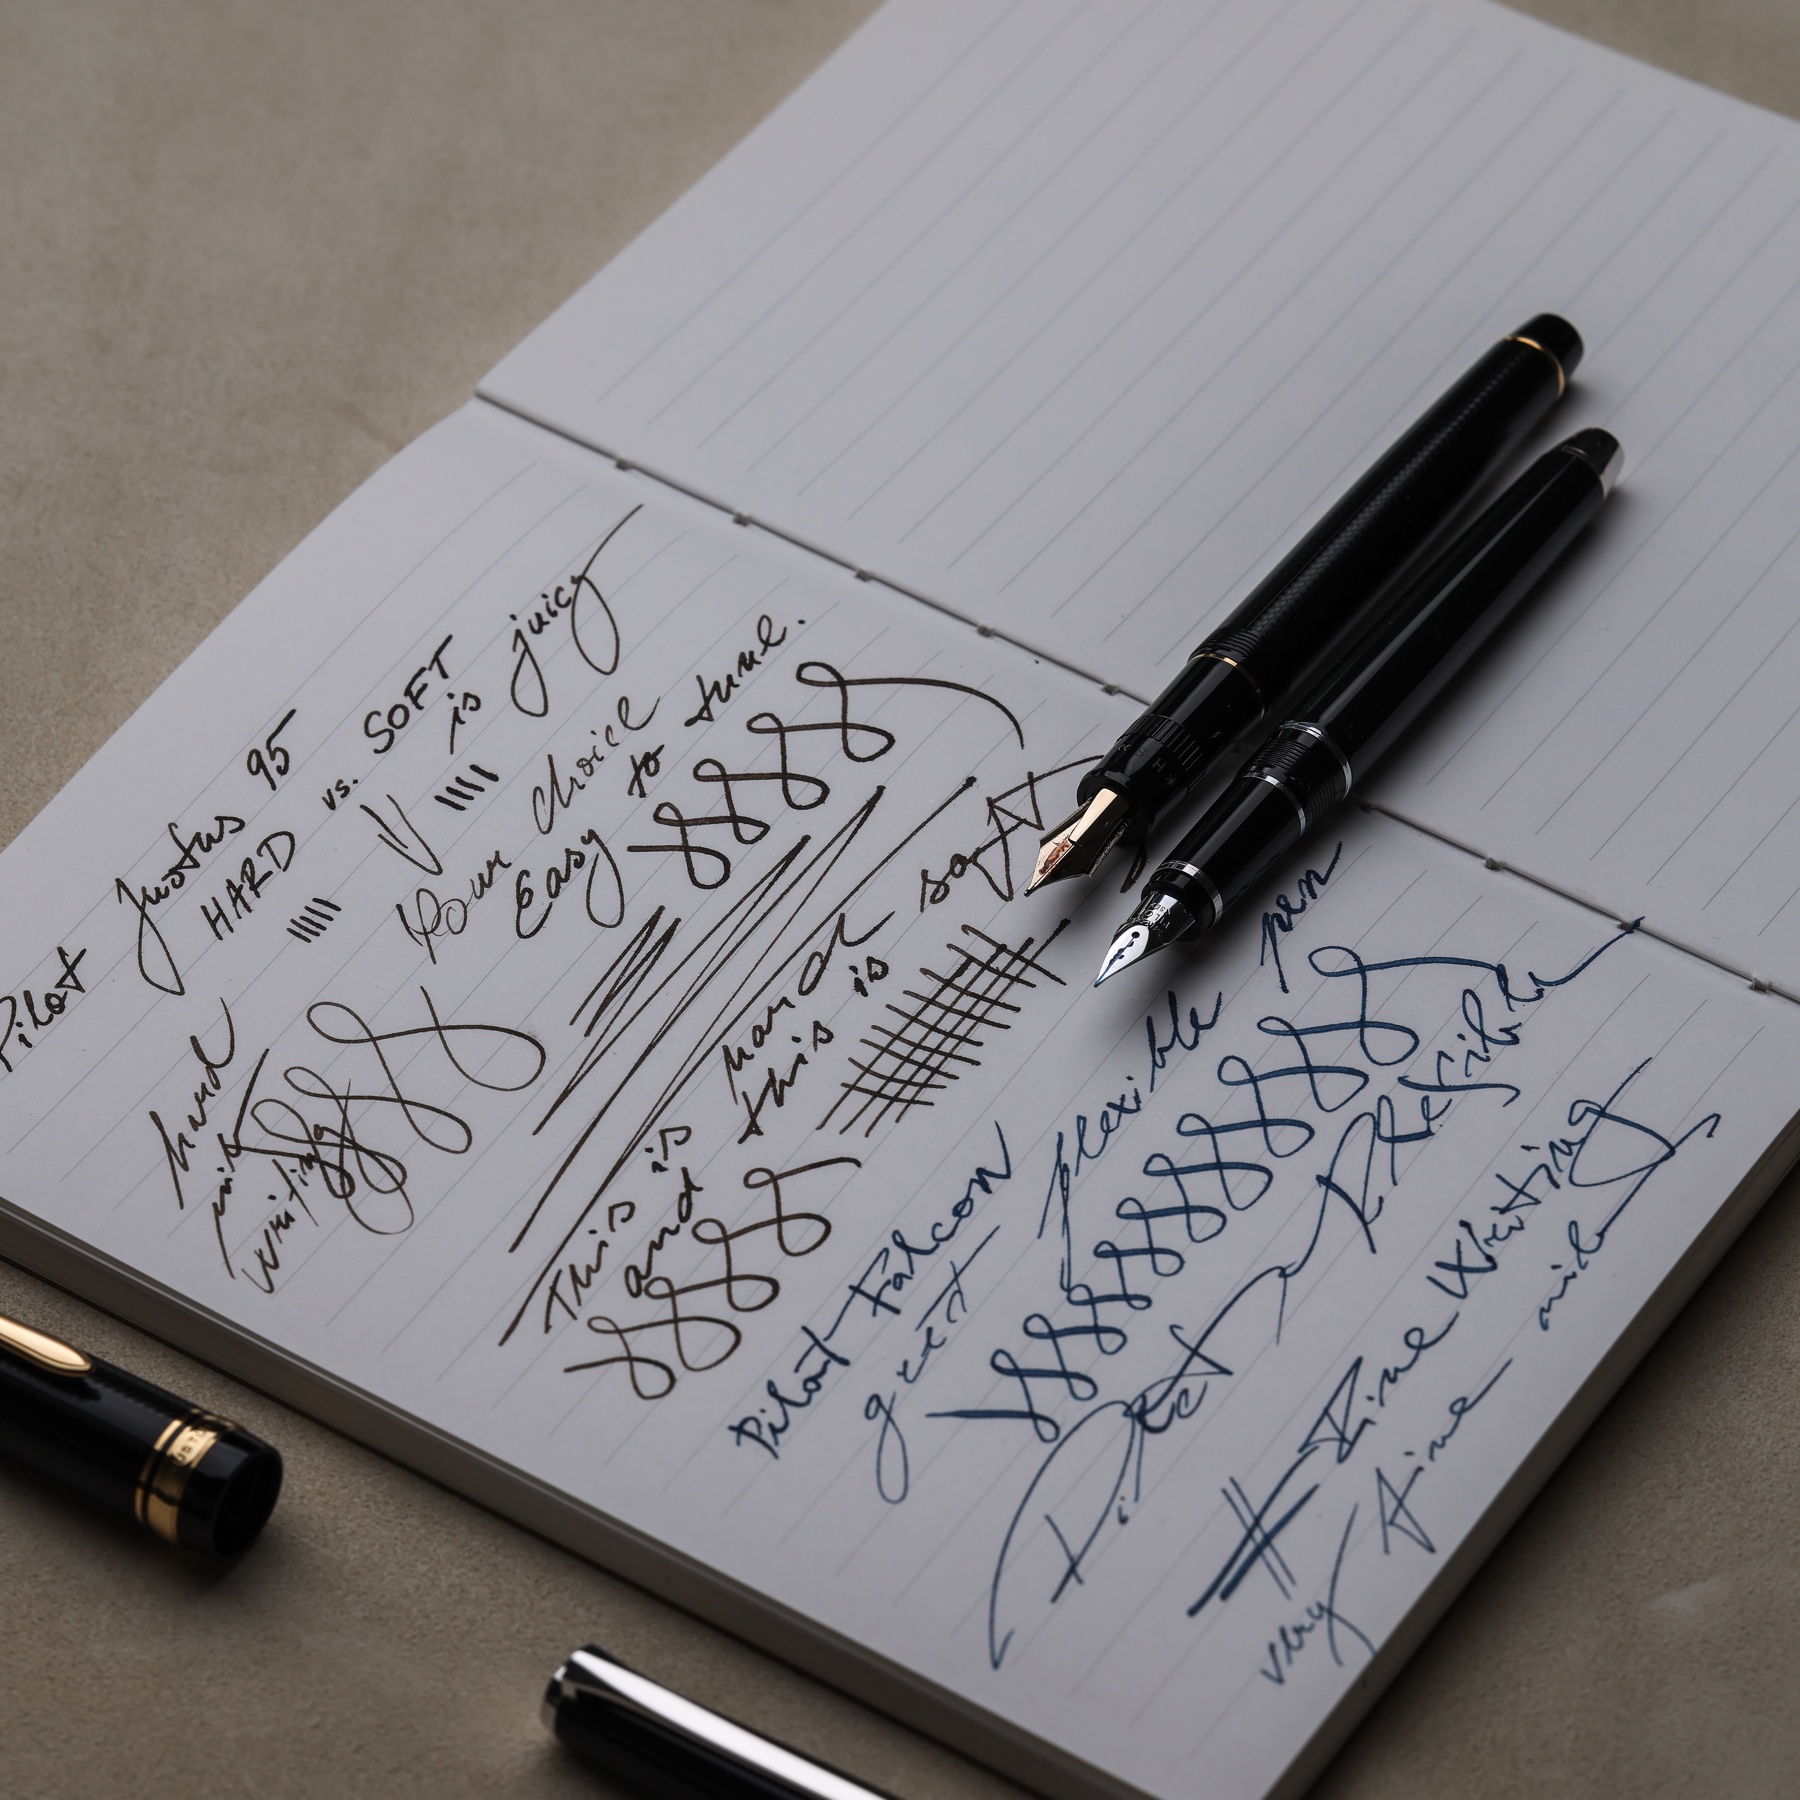 Pilot Justus 95
HARD vs. SOFT
is juicy
Your choice
Easy to tune.
hard
writing
This is hard
and this is soft
Pilot Falcon
great flexible pen
Fine Writing
very fine nib